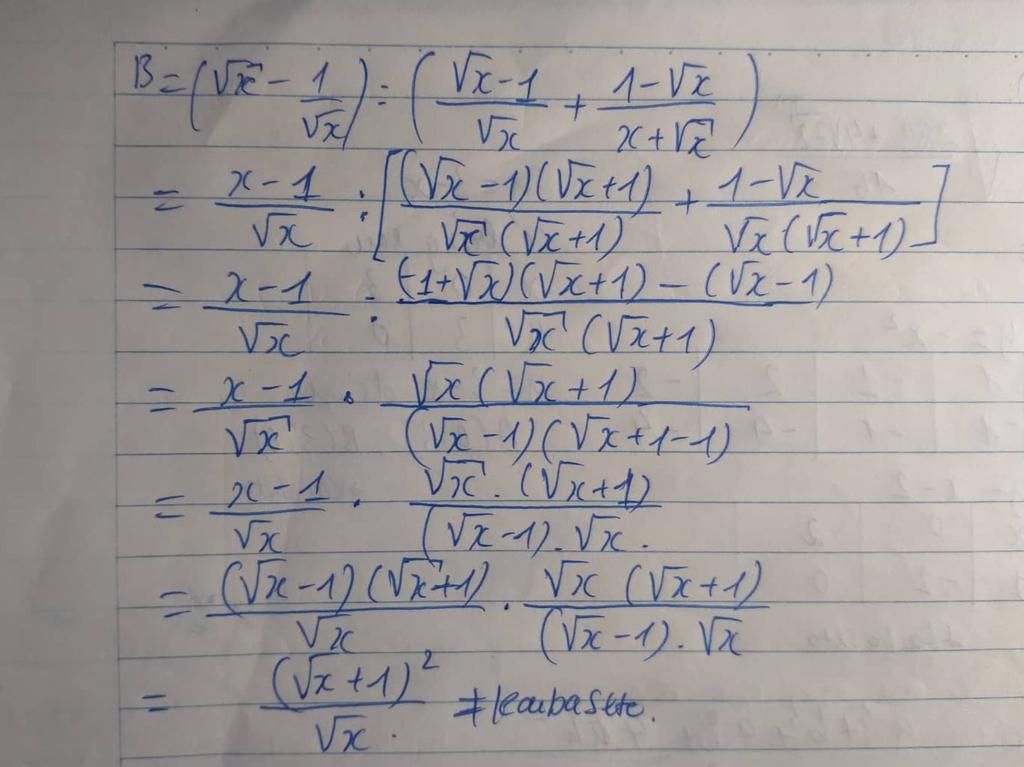 B = (√x - 1/√x) : ((√x - 1)/√x + (1 - √x)/(x + √x))
= (x - 1)/√x : [(√x - 1)(√x + 1)/(√x(√x + 1)) + (1 - √x)/(√x(√x + 1))]
= (x - 1)/√x : ((-1 + √x)(√x + 1) - (√x - 1))/(√x(√x + 1))
= (x - 1)/√x . √x(√x + 1)/((√x - 1)(√x + 1 - 1))
= (x - 1)/√x . √x . (√x + 1)/((√x - 1) . √x) .
= (√x - 1)(√x + 1)/√x . √x(√x + 1)/((√x - 1) . √x)
= (√x + 1)²/√x .